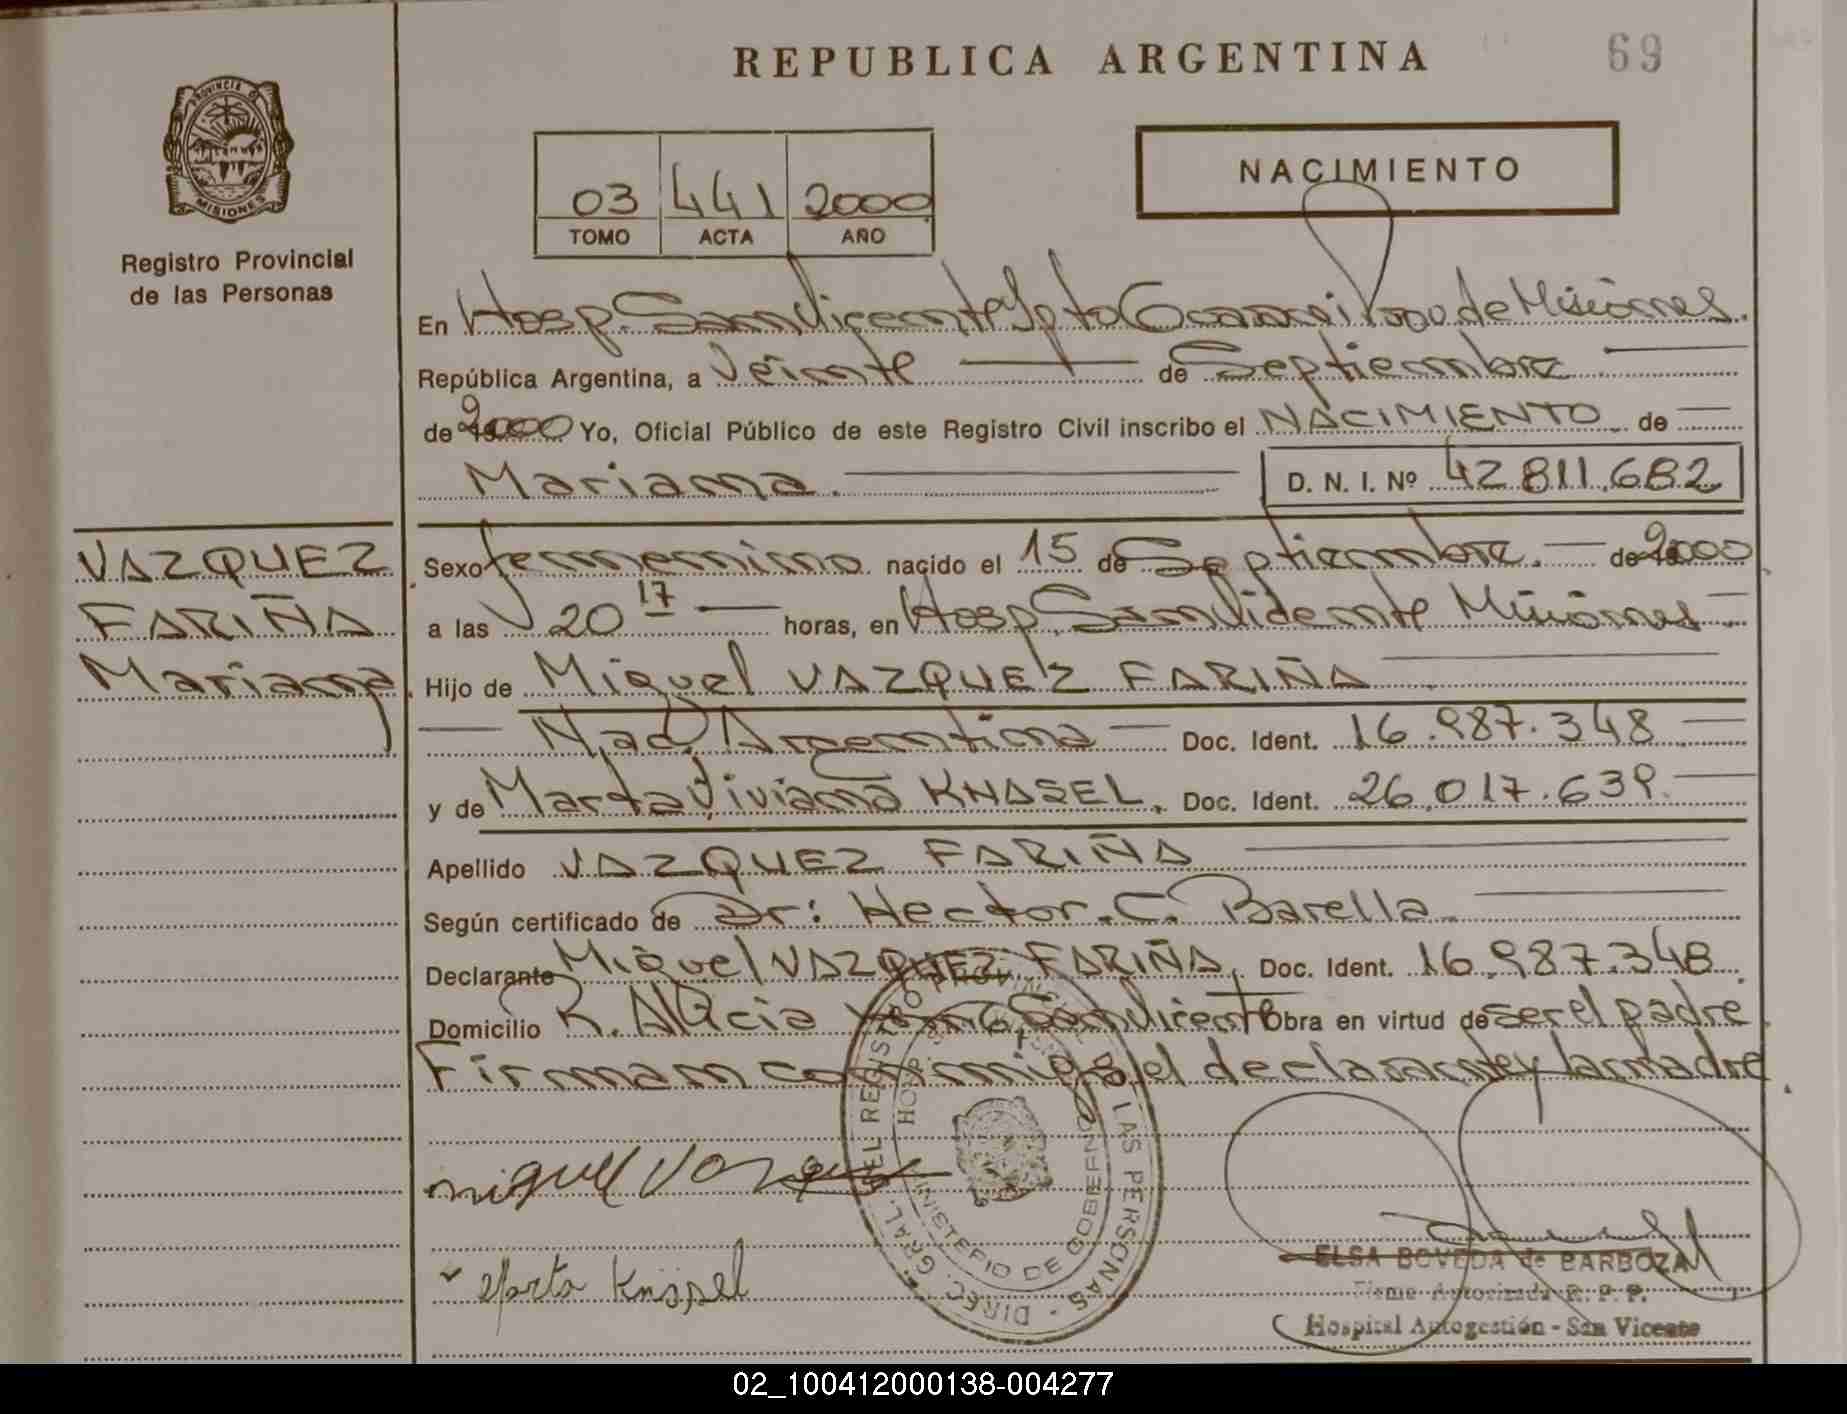 REPUBLICA ARGENTINA
69
PROVINCIA DE
MISIONES
Registro Provincial
de las Personas
03 441 2000
TOMO ACTA AÑO
NACIMIENTO
En Hosp. San Vicente Dpto Guaraní Prov de Misiones.
República Argentina, a Veinte de Septiembre
de 2000 Yo, Oficial Público de este Registro Civil inscribo el NACIMIENTO de
Mariana. D. N. I. Nº 42 811.682
VAZQUEZ
FARIÑA
Mariana
Sexo femenino nacido el 15 de Septiembre. de 2000
a las 20 17 horas, en Hosp. San Vicente Misiones
Hijo de Miguel VAZQUEZ FARIÑA
Nac. Argentina Doc. Ident. 16.987.348
y de Marta Viviana KNASEL. Doc. Ident. 26.017.639.
Apellido VAZQUEZ FARIÑA
Según certificado de Dr: Hector. C. Barella
Declarante Miguel VAZQUEZ FARIÑA, Doc. Ident. 16.987.348
Domicilio San Vicente Obra en virtud de ser el padre.
Firman conmigo el declarante y la madre.
miguel Vazquez
Marta Knasel
DIREC. GRAL. DEL REGISTRO PROVINCIAL DE LAS PERSONAS
MINISTERIO DE GOBIERNO
ELSA BOVEDA de BARBOZA
Firma Autorizada R. P. P.
Hospital Autogestión - San Vicente
02_100412000138-004277